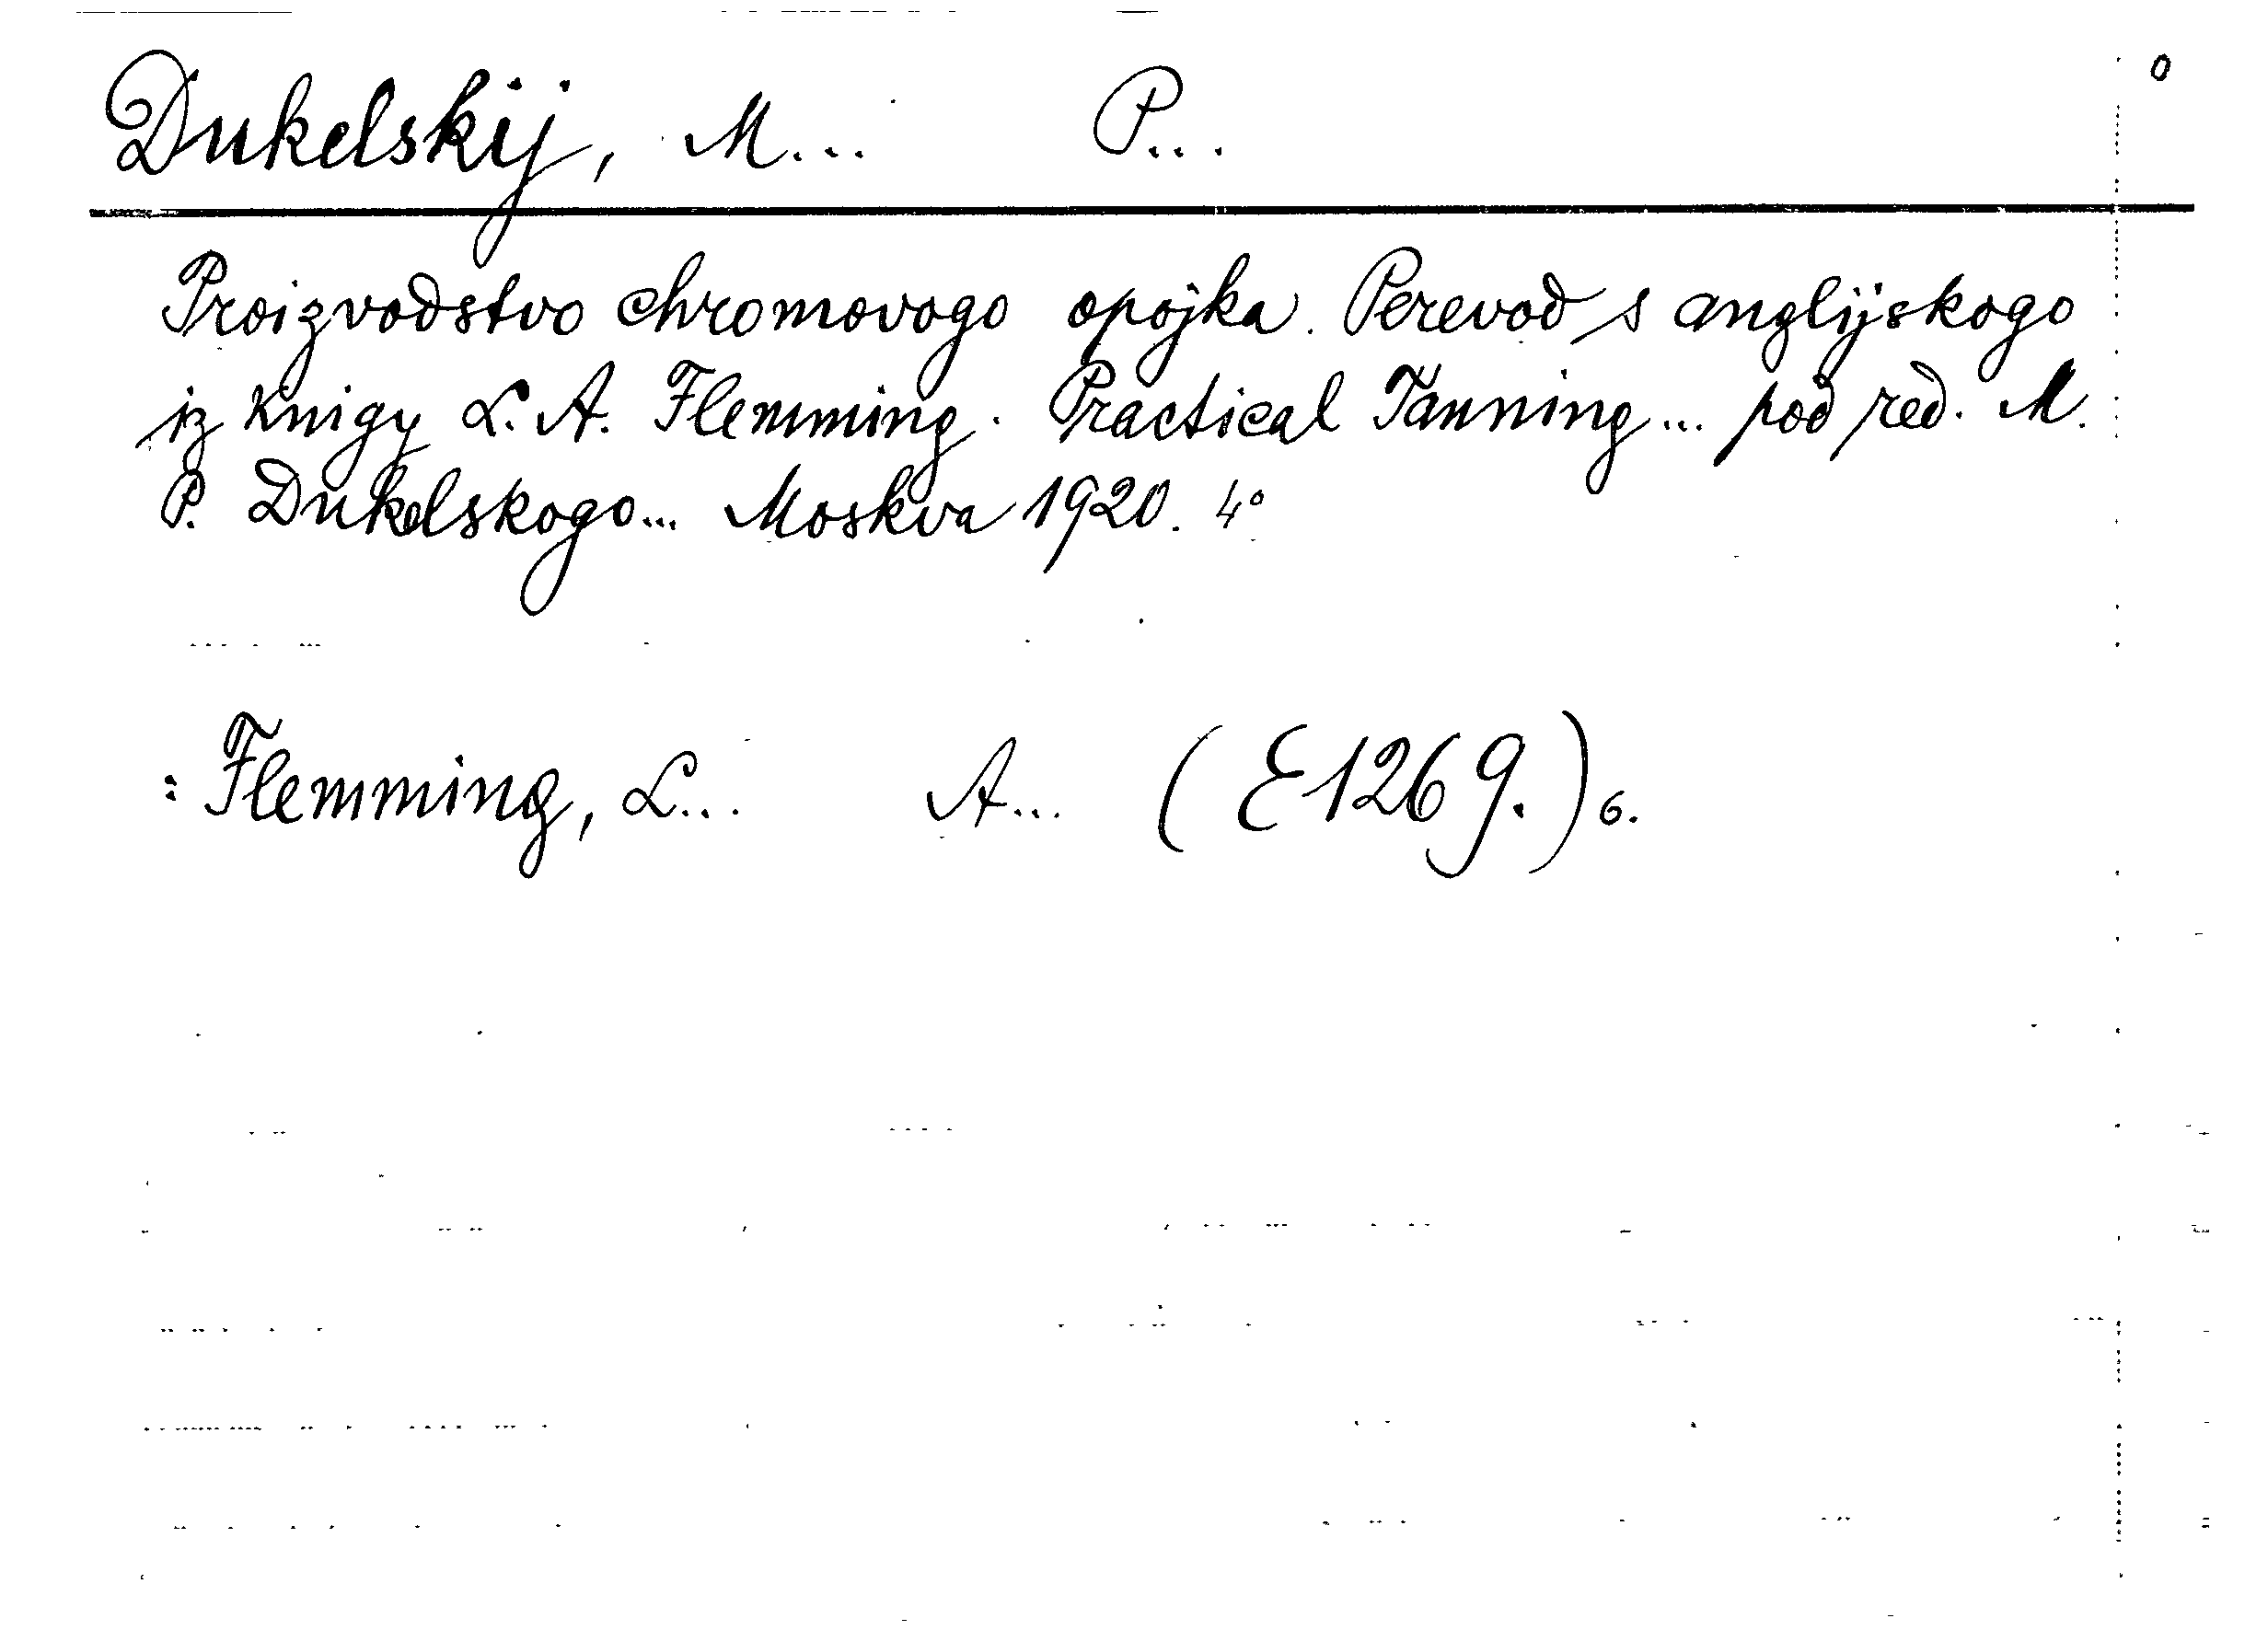 Dukelskij, M... P... 0
Proizvodstvo chromovogo opojka. Perevod s anglijskogo
iz knigy L. A. Flemming. Practical Tanning... pod red. M.
P. Dukelskogo... Moskva 1920. 4°
: Flemming, L... A... (E 126 9.) 6.